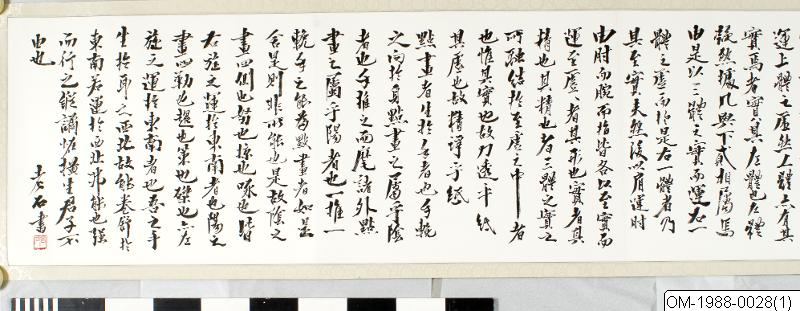 運上體之虛然上體亦有其
實焉者實其左體也左體
凝然據几與下貳相屬焉
由是以三體之實而運右一
體之虛而於是右一體者乃
其至實夫然後以肩運肘
由肘而腕而指皆各以至實而
運至虛虛者其形也實者其
精也其精也者三體之實之
所融結於至虛之中者
也惟其實也故力透乎紙
其虛也故精浮乎紙
點畫者生於手者也手輓
之向於身點畫之屬乎陰
者也手推之而麾諸外點
畫之屬乎陽者也一推一
輓手之能為點畫者如是
舍是則非所能也是故陰之
畫四側也努也掠也啄也皆
右旋之運於東南者也陽之
畫四勒也趯也策也磔也左
旋之運於東南者也吾之手
生於卯之西北故能卷舒於
東南若運於西北弗能也強
而行之縱譎怪橫生君子不
由也
老石書
OM-1988-0028(1)